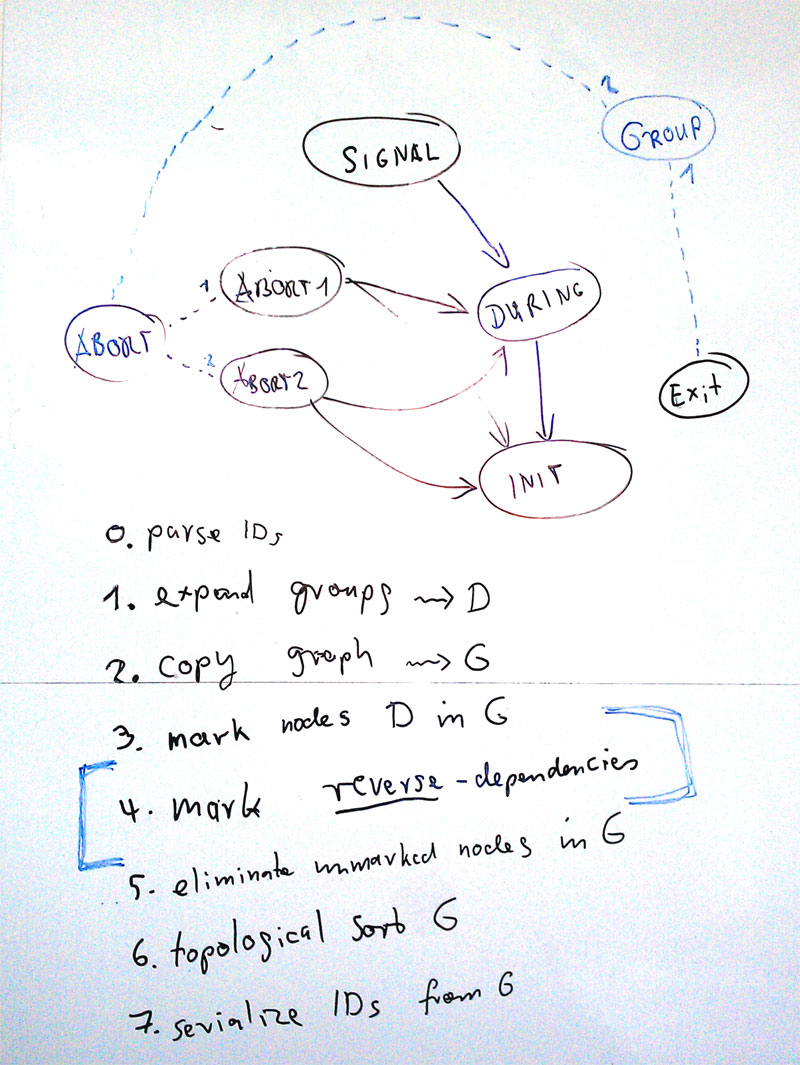 2
GROUP
1
SIGNAL
1
ABORT1
DURING
ABORT
2
ABORT2
Exit
INIT
0. parse IDs
1. expand groups ⇝ D
2. copy graph ⇝ G
3. mark nodes D in G
4. mark reverse-dependencies
5. eliminate unmarked nodes in G
6. topological sort G
7. serialize IDs from G